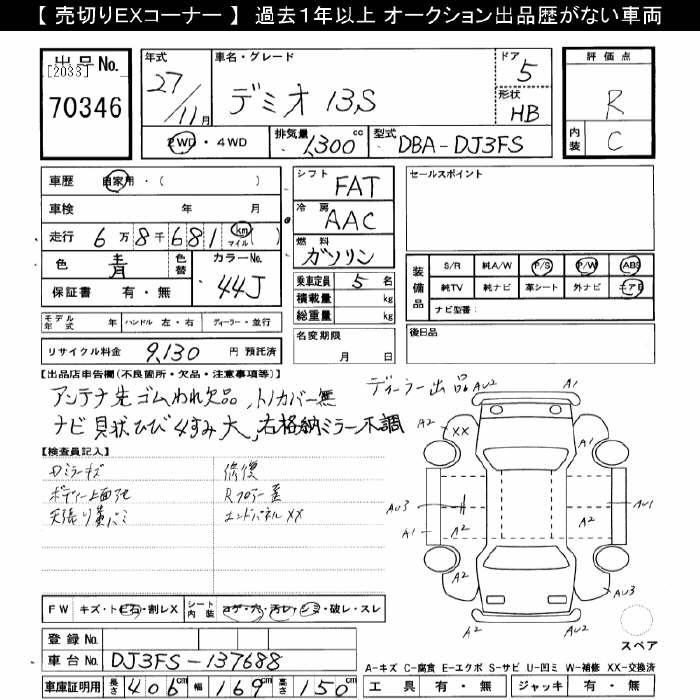 【 売切りEXコーナー 】 過去1年以上 オークション出品歴がない車両
出品No.
[2033]
70346
年式
27/11月
車名・グレード
デミオ 13S
ドア
5
形状
HB
評価点
R
内装
C
2WD・4WD
排気量
1,300cc
型式
DBA-DJ3FS
車歴 自家用・( )
車検 年 月
走行 6万8千681 km マイル ( )
色 青 色替 カラーNo. 44J
保証書 有・無
モデル年式 年 ハンドル 左・右 ディーラー・並行
リサイクル料金 9,130 円 預託済
シフト FAT
冷房 AAC
燃料 ガソリン
乗車定員 5 名
積載量 kg
総重量 kg
名変期限
月 日
セールスポイント
装備品
S/R 純A/W P/S P/W ABS
純TV 純ナビ 革シート 外ナビ エアB
ナビ型番:
後日品
【出品店申告欄(不良箇所・欠品・注意事項等)】 ディーラー出品
アンテナ先ゴムわれ欠品、トノカバー無
ナビ 貝状ひび 4すみ大、右格納ミラー不調
【検査員記入】
ロミラーキズ
ボディー上面
天張り
修復
Rフロアー
エンドパネルXX
AU2 A1
A2 XX A1
AU3 A2 A2 AU1
A1
A2 A2
AU3
A2 AU2
スペア
FW キズ・トビ石・割レX シート内装 コゲ・穴・汚レ・シミ・破レ・スレ
登録No.
車台No. DJ3FS-137688
車庫証明用 長さ 406cm 幅 169cm 高さ 150cm
A-キズ C-腐食 E-エクボ S-サビ U-凹ミ W-補修 XX-交換済
工具 有・無 ジャッキ 有・無